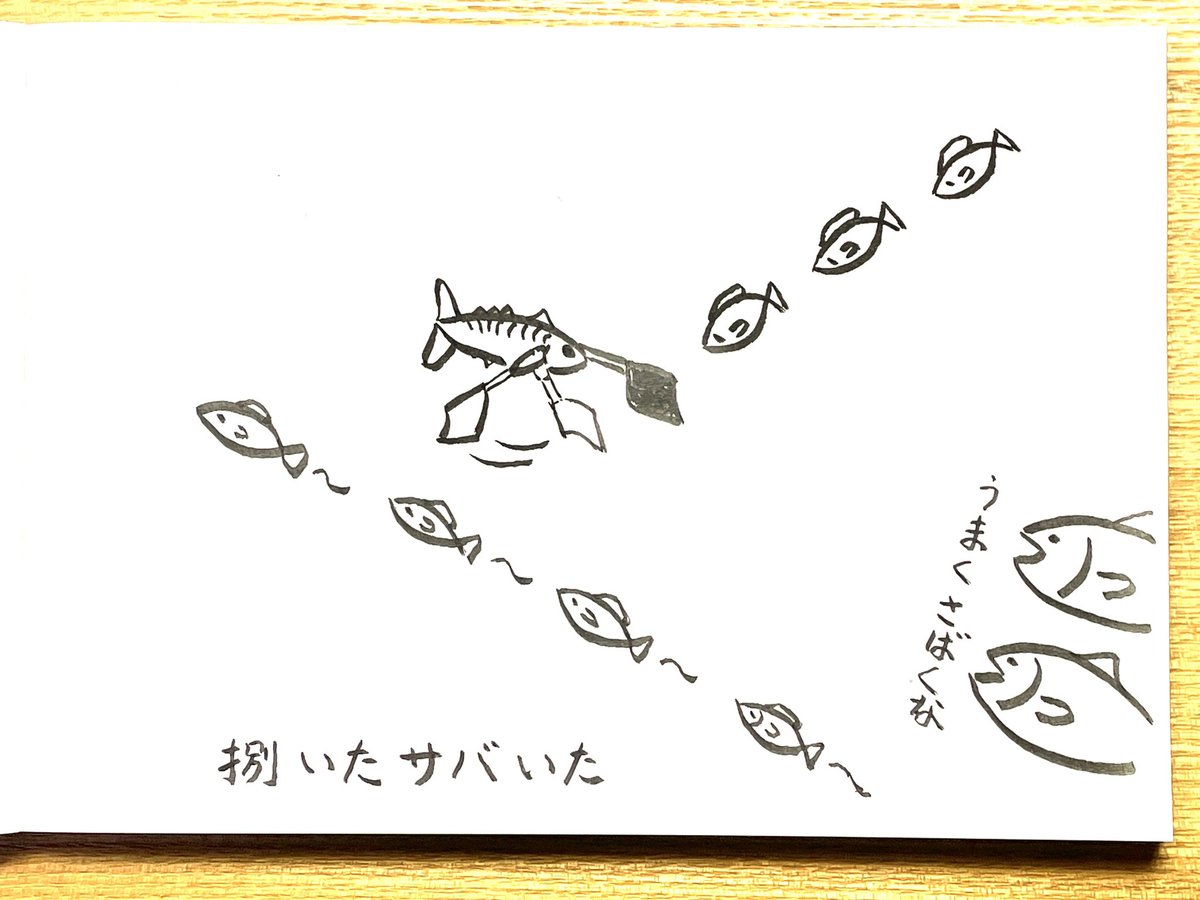 うまくさばくな
捌いたサバいた